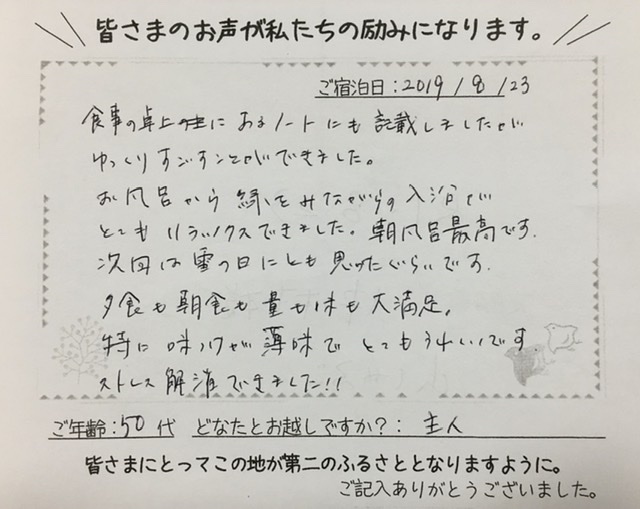 皆さまのお声が私たちの励みになります。
ご宿泊日:2019/8/23
食事の卓上にあるノートにも記載しましたが
ゆっくりすごすことができました。
お風呂から緑をみながらの入浴が
とてもリラックスできました。朝風呂最高です.
次回は雪の日にとも思ったぐらいです.
夕食も朝食も量も味も大満足。
特に味つけが薄味でとてもうれしいです
ストレス解消できました!!
ご年齢:50代 どなたとお越しですか?:主人
皆さまにとってこの地が第二のふるさととなりますように。
ご記入ありがとうございました。